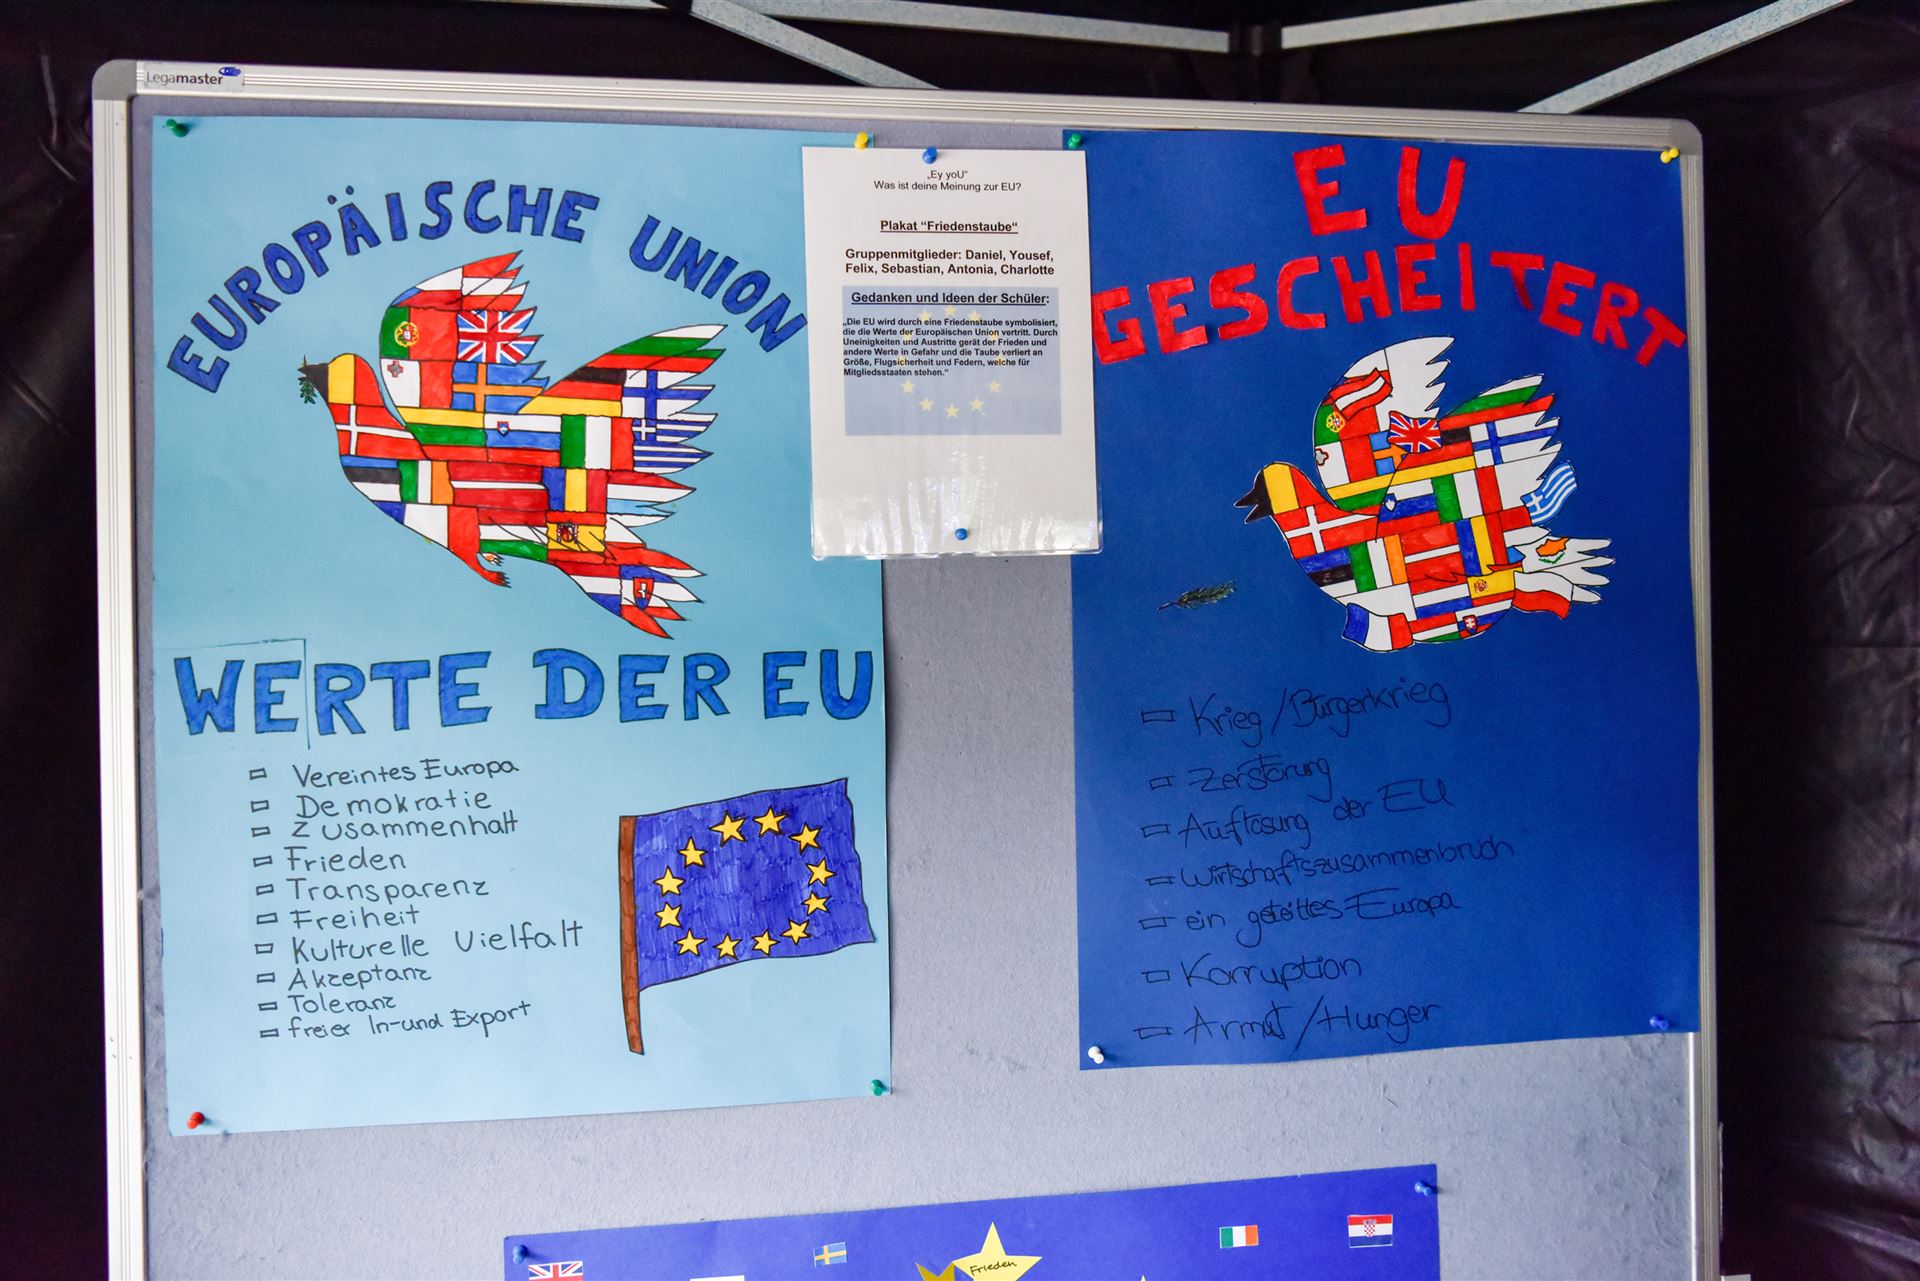 Legamaster
EUROPÄISCHE UNION
WERTE DER EU
Vereintes Europa
Demokratie
Zusammenhalt
Frieden
Transparenz
Freiheit
Kulturelle Vielfalt
Akzeptanz
Toleranz
freier In-und Export
„Ey yoU"
Was ist deine Meinung zur EU?
Plakat “Friedenstaube“
Gruppenmitglieder: Daniel, Yousef,
Felix, Sebastian, Antonia, Charlotte
Gedanken und Ideen der Schüler:
„Die EU wird durch eine Friedenstaube symbolisiert,
die die Werte der Europäischen Union vertritt. Durch
Uneinigkeiten und Austritte gerät der Frieden und
andere Werte in Gefahr und die Taube verliert an
Größe, Flugsicherheit und Federn, welche für
Mitgliedsstaaten stehen.“
EU
GESCHEITERT
Krieg/Bürgerkrieg
Zerstörung
Auflösung der EU
Wirtschaftszusammenbruch
ein geteiltes Europa
Korruption
Armut/Hunger
Frieden